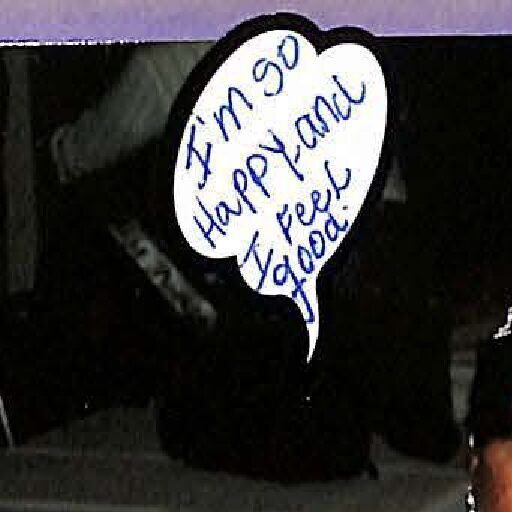 I'm so
Happy and
I Feel
good.